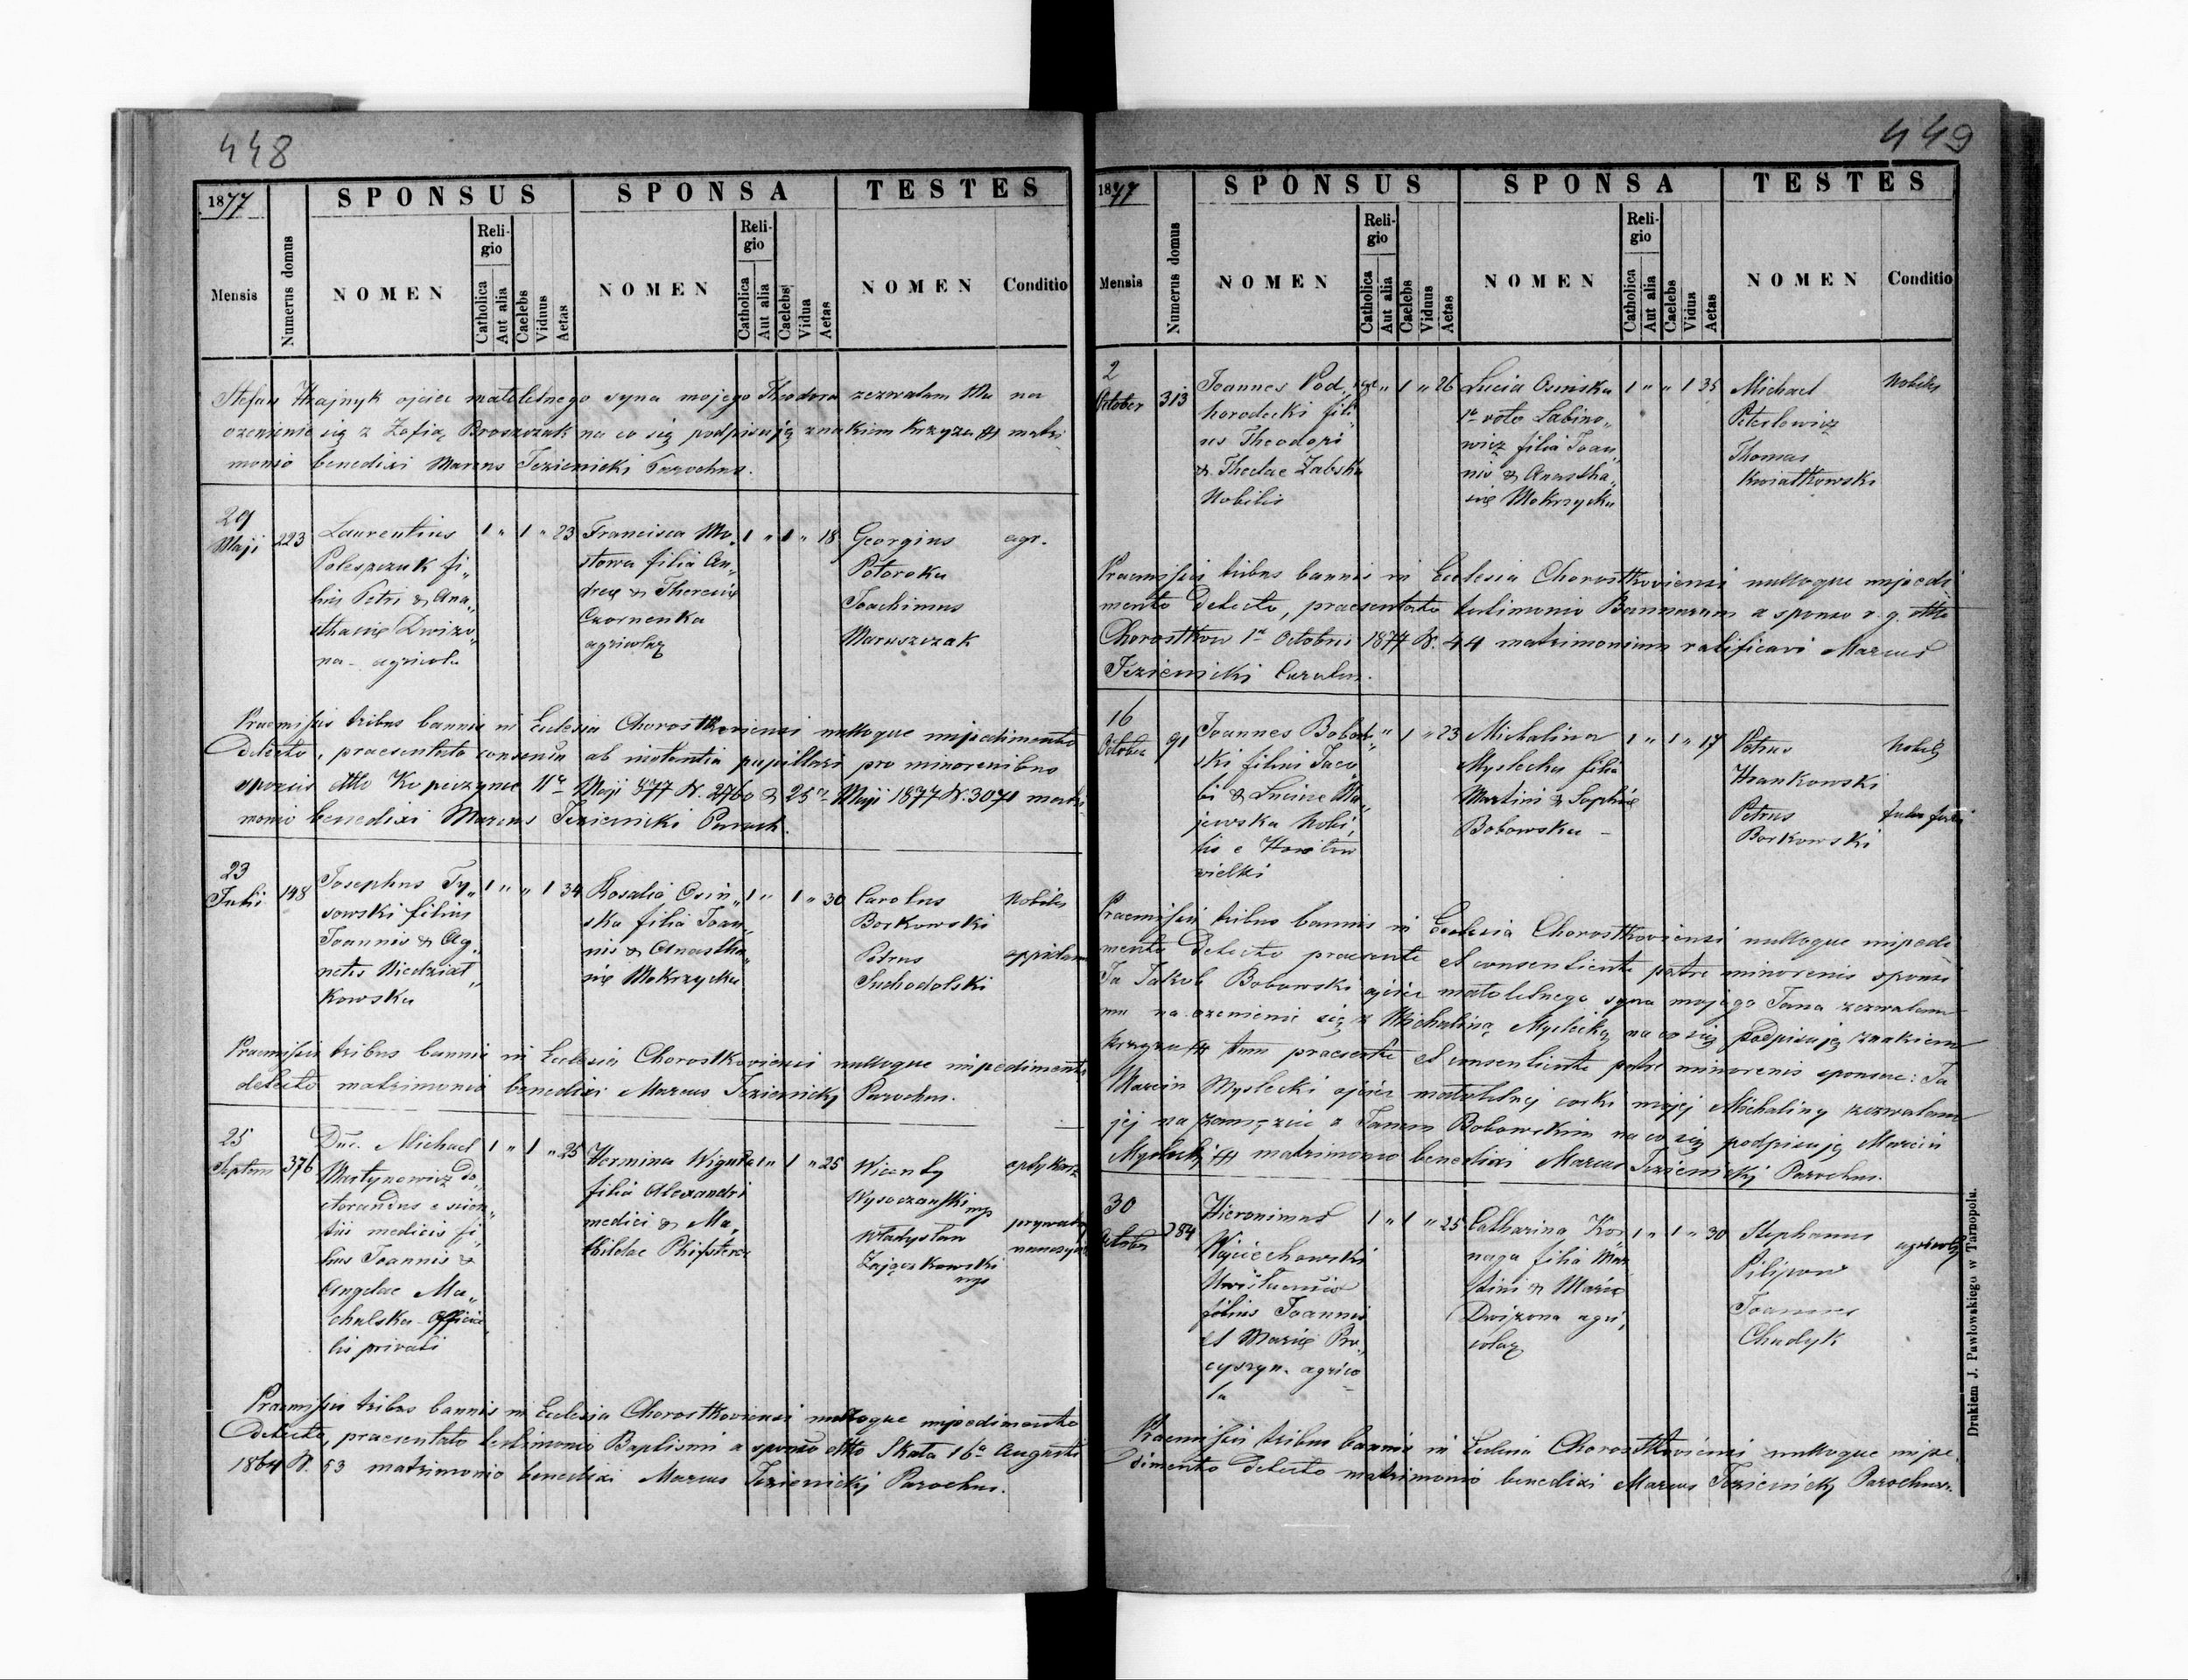 448
1877
SPONSUS
SPONSA
TESTES
Mensis
Numerus domus
NOMEN
Religio
Catholica
Aut alia
Caelebs
Viduus
Aetas
NOMEN
Religio
Catholica
Aut alia
Caelebs
Vidua
Aetas
NOMEN
Conditio
Stefan Hrajnyk ojciec małoletnego syna mojego Theodora zezwalam mu na
ozenienie się z Zofią Broszczak na co się podpisuję znakiem krzyża ## matri
monio benedixi Marcus Jezienicki Parochus.
29
Maji
223
Laurentius
Poleszczuk fi„
lius Petri & Ana„
sthasiæ Dwizo„
na - agricola
1 „ 1 „ 23
Francisca Mo„
stowa filia An„
dreæ & Theresiæ
Czornenka
agricolæ
1 „ 1 „ 18
Georgius
Potoroka
Joachimus
Maruszczak
agr.
Praemissis tribus bannis in Ecclesia Chorostkoviensi nulloque impedimento
detecto, praesentato consensu ab instantia pupillari pro minorenibus
sponsis dtto Kopeczynce 11a Maji 877 N. 2760 & 25a Maji 1877 N. 3071 matri
monio benedixi Marcus Jezienicki Paroch.
23
Julii
148
Josephus Ty„
sowski filius
Joannis & Ag„
netis Niedziat„
kowska
1 „ „ 1 34
Rosalia Osin„
ska filia Joan„
nis & Anastha„
siæ Mokrzycka
1 „ 1 „ 30
Carolus
Borkowski
Petrus
Suchodolski
Nobilis
oppidanus
Praemissis tribus bannis in Ecclesia Chorostkoviensi nulloque impedimento
detecto matrimonio benedixi Marcus Jezienicki Parochus.
25
Septem
376
Dnc. Michael
Martynowicz do„
ctorandus e scien„
tiis medicis fi„
lius Joannis &
Angelae Ma„
chalska - Officia„
lis privati
1 „ 1 „ 25
Hermina Wigura
filia Alexandri
medici & Ma„
thildae
1 „ 1 „ 25
Wicenty
Wysoczański mp
Władysław
Zajączkowski
mp
aptykarz
prywatny
Praemissis tribus bannis in Ecclesia Chorostkoviensi nulloque impedimento
detecto, praesentato testimonio Baptismi a sponso dtto Skała 16a Augusti
1864 N. 53 matrimonio benedixi Marcus Jezienicki Parochus.
449
1877
SPONSUS
SPONSA
TESTES
Mensis
Numerus domus
NOMEN
Religio
Catholica
Aut alia
Caelebs
Viduus
Aetas
NOMEN
Religio
Catholica
Aut alia
Caelebs
Vidua
Aetas
NOMEN
Conditio
2
October
313
Joannes Pod„
horodecki fili„
us Theodori
& Theclae Zabska
Nobilis
„ 1 „ 26
Lucia Osinska
1o voto Labino„
wicz filia Joan„
nis & Anastha„
siæ Mokrzycka
1 „ „ 1 35
Michael
Peterlowicz
Thomas
Kwiatkowski
Nobiles
Praemissis tribus bannis in Ecclesia Chorostkoviensi nulloque impedi
mento detecto, praesentato testimonio Bannorum a sponso r. g. dtto
Chorostkow 1a Octobris 1877 N. 44 matrimonium ratificavi Marcus
Jezienicki Curatus.
16
October
91
Joannes Bobow
ski filius Jaco„
bi & Luciae Ma„
jewska Nobi„
lis e Howiłow
wielki
„ 1 „ 23
Michalina
Myslecka filia
Martini & Sophiæ
Bobowska -
1 „ 1 „ 17
Petrus
Hrankowski
Petrus
Borkowski
Nobilis
faber
Praemissis tribus bannis in Ecclesia Chorostkoviensi nulloque impedi
mento detecto praesente et consentiente patre minorenis sponsi
Ja Jakob Bobowski ojciec małoletnego syna mojego Jana zezwalam
mu na ozenienie się z Michaliną Myslecką na co się podpisuję znakiem
krzyza ## tum praesente et consentiente patre minorenis sponsae: Ja
Marcin Myslecki ojciec małoletnej corki mojej Michaliny zezwalam
jej na zamęzcie z Janem Bobowskim na co się podpisuję Marcin
Myslecki ## matrimonio benedixi Marcus Jezienicki Parochus.
30
October
284
Hieronimus
Wojciechowski
filius Joannis
et Mariæ Pro„
cyszyn. agrico
la
1 „ 1 „ 25
Catharina Kor
naga filia Mar
tini & Mariæ
Dwizona agri„
colæ
1 „ 1 „ 30
Stephanus
Pilipow
Joannes
Chudyk
agricolæ
Praemissis tribus bannis in Ecclesia Chorostkoviensi nulloque impe„
dimento detecto matrimonio benedixi Marcus Jezienicki Parochus.
Drukiem J. Pawłowskiego w Tarnopolu.